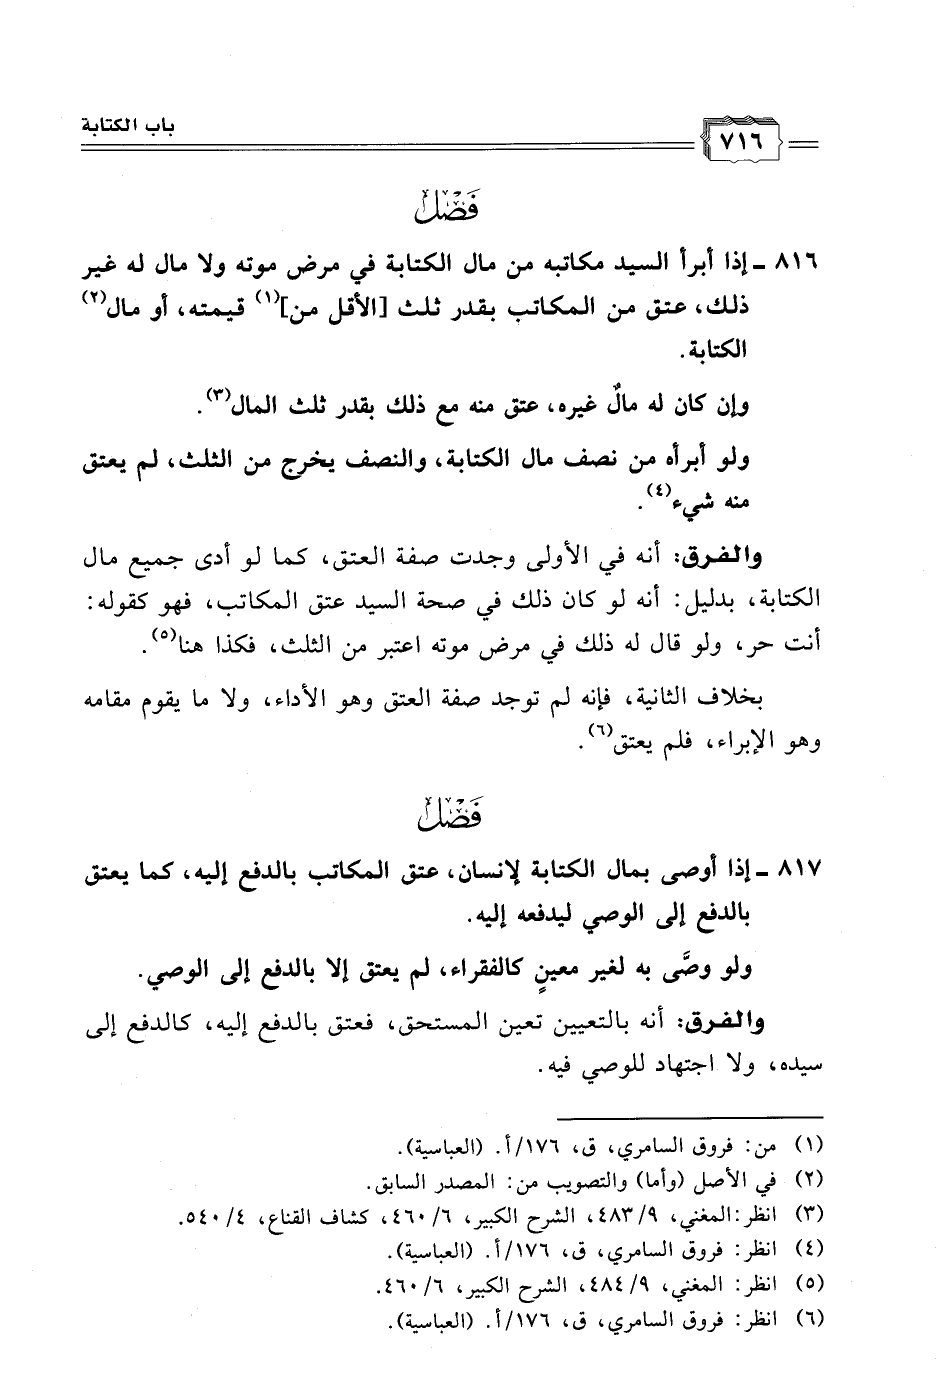 باب الكتابة
٧١٦
فَصْل
٨١٦ ـ إذا أبرأ السيد مكاتبه من مال الكتابة في مرض موته ولا مال له غير
ذلك، عتق من المكاتب بقدر ثلث [الأقل من](١) قيمته، أو مال(٢)
الكتابة.
وإن كان له مالٌ غيره، عتق منه مع ذلك بقدر ثلث المال(٣).
ولو أبرأه من نصف مال الكتابة، والنصف يخرج من الثلث، لم يعتق
منه شيء(٤).
والفرق: أنه في الأولى وجدت صفة العتق، كما لو أدى جميع مال
الكتابة، بدليل: أنه لو كان ذلك في صحة السيد عتق المكاتب، فهو كقوله:
أنت حر، ولو قال له ذلك في مرض موته اعتبر من الثلث، فكذا هنا(٥).
بخلاف الثانية، فإنه لم توجد صفة العتق وهو الأداء، ولا ما يقوم مقامه
وهو الإبراء، فلم يعتق(٦).
فَصْل
٨١٧ ـ إذا أوصى بمال الكتابة لإنسان، عتق المكاتب بالدفع إليه، كما يعتق
بالدفع إلى الوصي ليدفعه إليه.
ولو وصَّى به لغير معينٍ كالفقراء، لم يعتق إلا بالدفع إلى الوصي.
والفرق: أنه بالتعيين تعين المستحق، فعتق بالدفع إليه، كالدفع إلى
سيده، ولا اجتهاد للوصي فيه.
(١) من: فروق السامري، ق، ١٧٦/أ. (العباسية).
(٢) في الأصل (وأما) والتصويب من: المصدر السابق.
(٣) انظر: المغني، ٤٨٣/٩، الشرح الكبير، ٤٦٠/٦، كشاف القناع، ٥٤٠/٤.
(٤) انظر: فروق السامري، ق، ١٧٦/أ. (العباسية).
(٥) انظر: المغني، ٤٨٤/٩، الشرح الكبير، ٤٦٠/٦.
(٦) انظر: فروق السامري، ق، ١٧٦/أ. (العباسية).